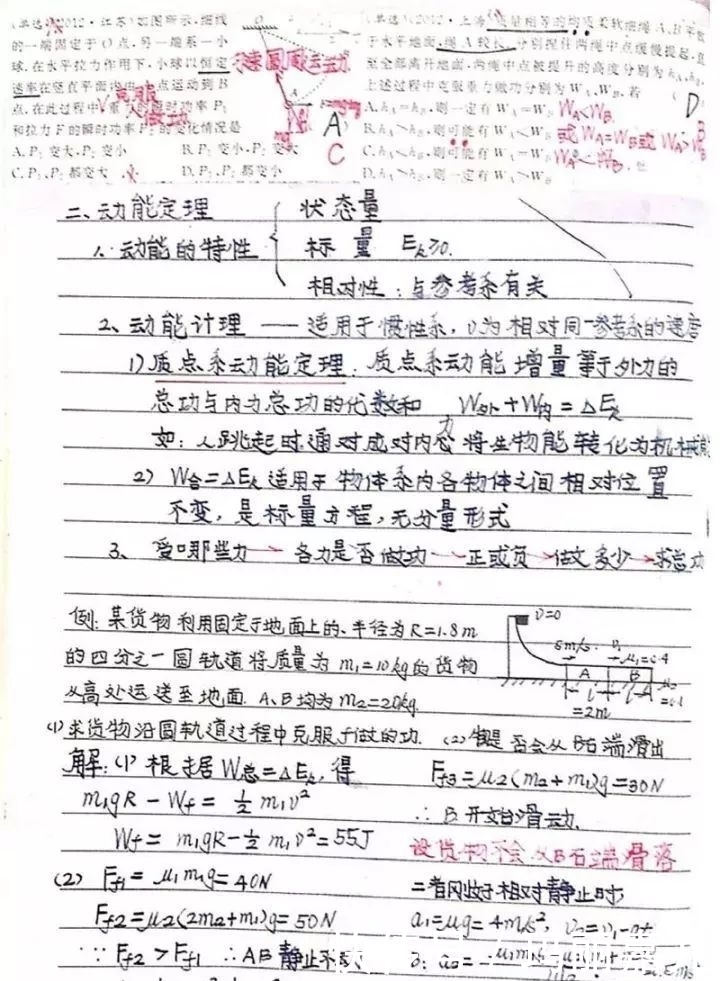 (单选)(2012·江苏)如图所示,细线
的一端固定于O点,另一端系一小
球.在水平拉力作用下,小球以恒定
速率在竖直平面内由A点运动到B
点.在此过程中重力的瞬时功率P₁
和拉力F的瞬时功率P₂的变化情况是
A.P₁变大,P₂变小 B.P₁变小,P₂变大
C.P₁、P₂都变大 D.P₁、P₂都变小
匀速圆周运动
克服
做功
A
C
(单选)(2012·上海)质量相等的均质柔软细绳A、B平放
于水平地面,绳A较长.分别捏住两绳中点缓慢提起,直
至全部离开地面,两绳中点被提升的高度分别为hA、hB,
上述过程中克服重力做功分别为WA、WB.若
A.hA=hB,则一定有WA=WB WA<WB
B.hA>hB,则可能有WA<WB 或WA=WB或WA>WB
C.hA<hB,则可能有WA=WB WA<WB
D.hA>hB,则一定有WA>WB
D
B
二、动能定理
1、动能的特性
状态量
标量 Eₖ≥0.
相对性:与参考系有关
2、动能计理 — 适用于惯性系,v为相对同一参考系的速度
1)质点系动能定理:质点系动能增量等于外力的
总功与内力总功的代数和 W外+W内=ΔEₖ
如:人跳起时通过成对内力将生物能转化为机械能
2) W合=ΔEₖ适用于物体系内各物体之间相对位置
不变,是标量方程,无分量形式
3、受哪些力→各力是否做功→正或负→做多少→求总功
例:某货物利用固定于地面上的、半径为R=1.8m
的四分之一圆轨道将质量为m₁=10kg的货物
从高处运送至地面.A、B均为m₂=20kg
v=0
6m/s
v₁
μ₁=0.4
A
B
l
l
=2m
(1)求货物沿圆轨道过程中克服f做的功. (2) 是否会从B右端滑出
解:(1)根据W总=ΔEₖ,得
m₁gR-Wf=½m₁v²
Wf=m₁gR-½m₁v²=55J
(2) Ff1=μ₁m₁g=40N
Ff2=μ₂(2m₂+m₁)g=50N
∵Ff2>Ff1 ∴AB静止不动
Ff3=μ₂(m₂+m₁)g=30N
∴B开始滑动.
设货物不会从B右端滑落
二者刚好相对静止时,
a₁=μg=4m/s², v₂=v₁-at